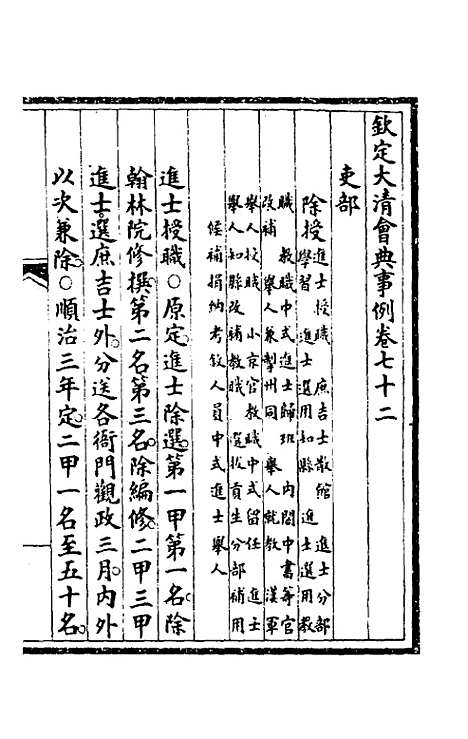 欽定大清會典事例卷七十二
吏部
除授進士授職 庶吉士散館 進士分部
學習 進士選用知縣 進士選用教
職 教職中式進士歸班 內閣中書等官
改補 舉人兼掣州同 舉人就教 漢軍
舉人授職 小京官教職中式留任 進士
舉人知縣改補教職 選拔貢生分部補用
候補捐納考敘人員中式進士舉人
進士授職○原定進士除選第一甲第一名除
翰林院修撰第二名第三名除編修二甲三甲
進士選庶吉士外分送各衙門觀政三月內外
以次兼除○順治三年定二甲一名至五十名